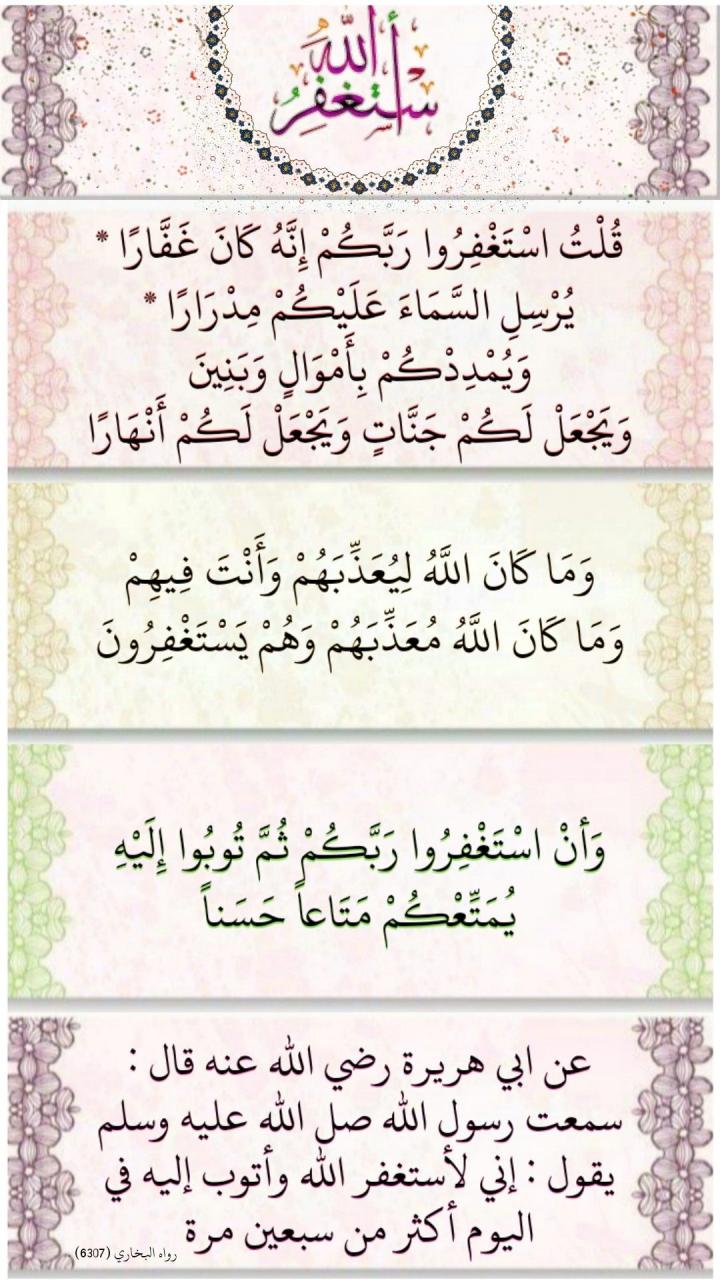 أستغفر الله
قُلْتُ اسْتَغْفِرُوا رَبَّكُمْ إِنَّهُ كَانَ غَفَّارًا *
يُرْسِلِ السَّمَاءَ عَلَيْكُمْ مِدْرَارًا *
وَيُمْدِدْكُمْ بِأَمْوَالٍ وَبَنِينَ
وَيَجْعَلْ لَكُمْ جَنَّاتٍ وَيَجْعَلْ لَكُمْ أَنْهَارًا
وَمَا كَانَ اللَّهُ لِيُعَذِّبَهُمْ وَأَنْتَ فِيهِمْ
وَمَا كَانَ اللَّهُ مُعَذِّبَهُمْ وَهُمْ يَسْتَغْفِرُونَ
وَأنْ اسْتَغْفِرُوا رَبَّكُمْ ثُمَّ تُوبُوا إِلَيْهِ
يُمَتِّعْكُمْ مَتَاعاً حَسَناً
عن ابي هريرة رضي الله عنه قال :
سمعت رسول الله صل الله عليه وسلم
يقول : إني لأستغفر الله وأتوب إليه في
اليوم أكثر من سبعين مرة
رواه البخاري (6307)